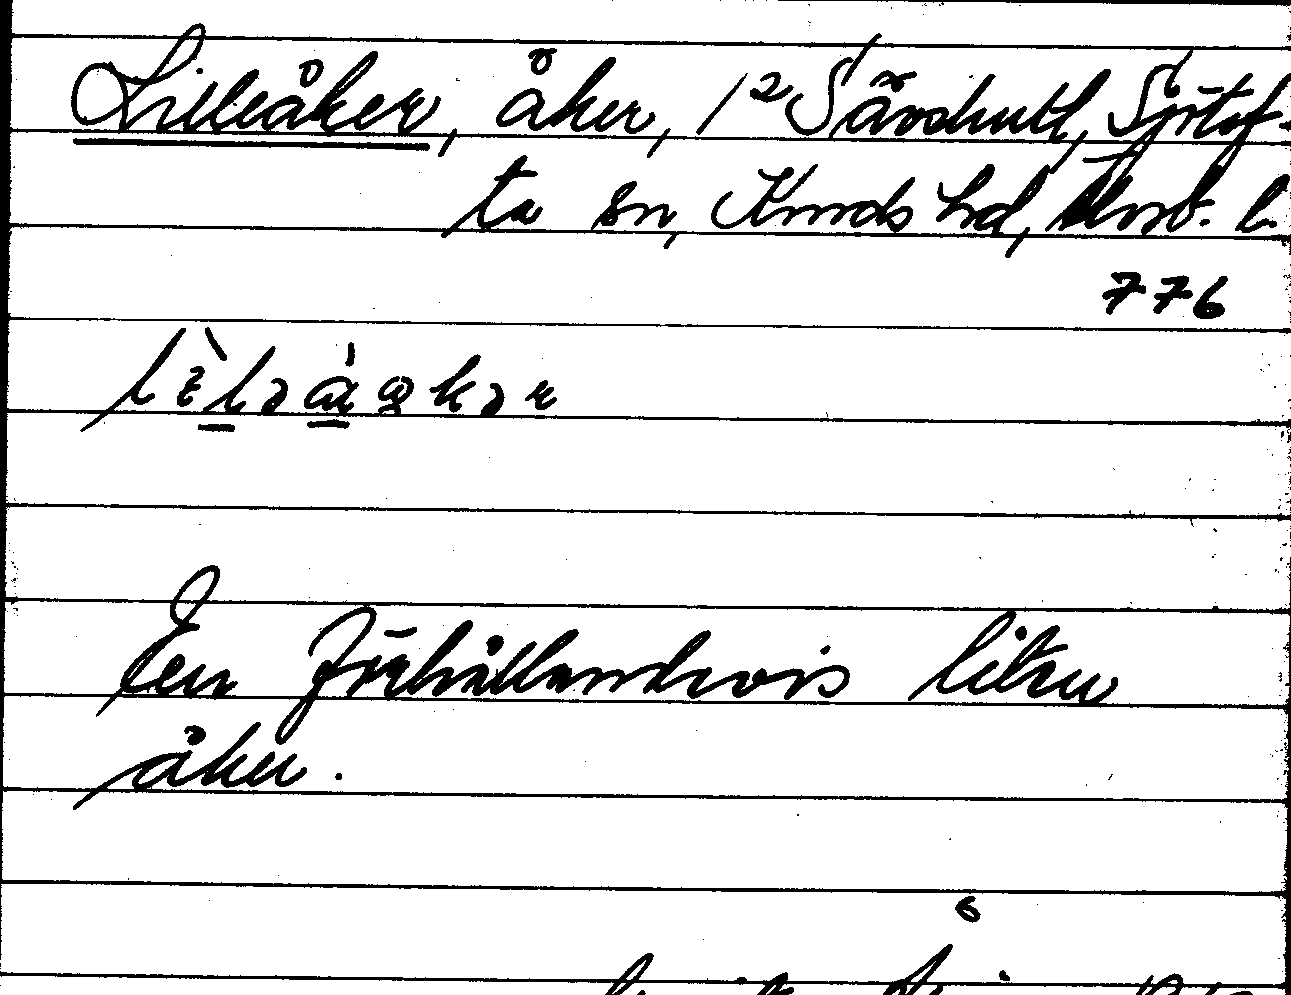 Lilleåker, åker, 1² Sävshult, Sjötof-
ta sn, Kinds hd, Älvsb. l.
776
En förhållandevis liten
åker.